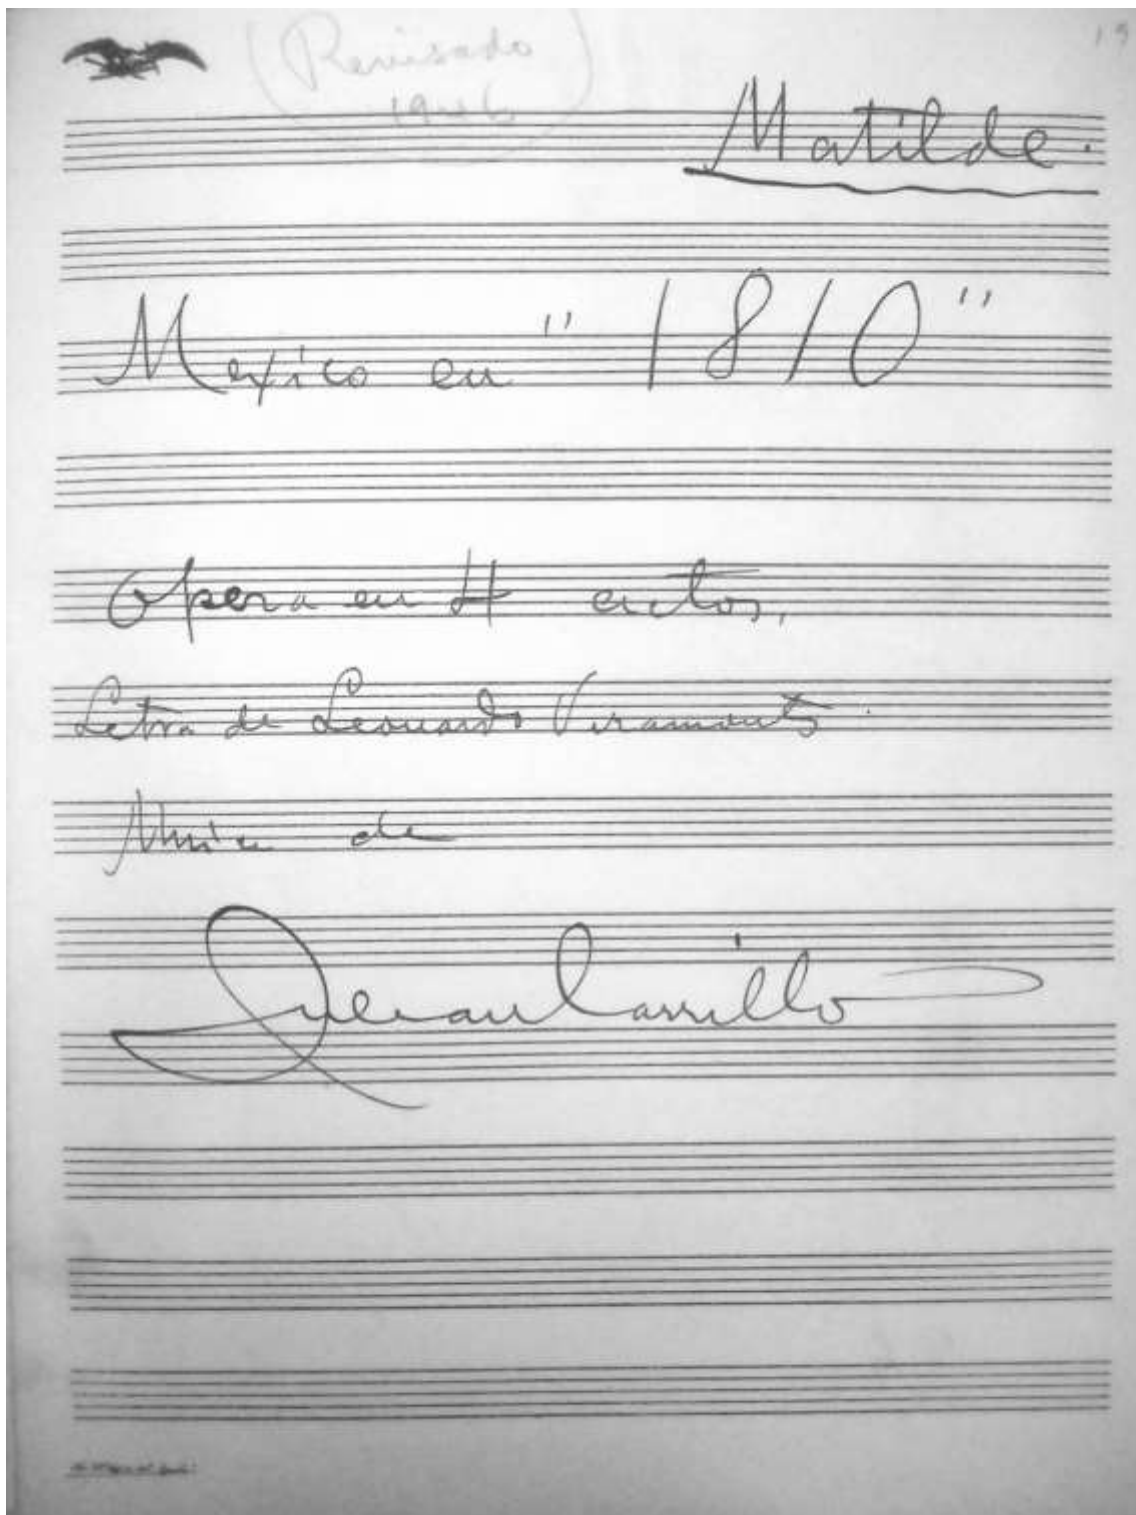 (Revisado
1946)
19
Matilde.
Mexico en "1810"
Opera en 4 actos,
Letra de Leonardo Viramontes.
Musica de
Julian Carrillo